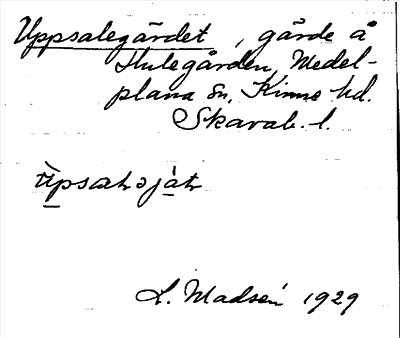 Uppsalegärdet, gärde å
Hulegården, Medel-
plana sn, Kinne hd.
Skarab. l.
L. Madsén 1929